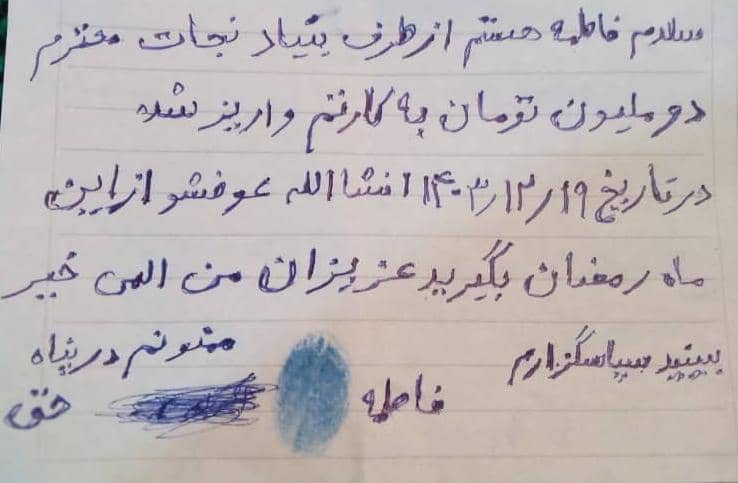 سلام فاطمه هستم از طرف بنیاد نجات محترم
دو ملیون تومان به کارتم واریز شد
در تاریخ ۱۴۰۳/۱۲/۱۹ انشاالله عوضشو از این
ماه رمضان بگیرید عزیزان من الهی خیر
ببینید سپاسگزارم ممنونم در پناه
فاطمه حق